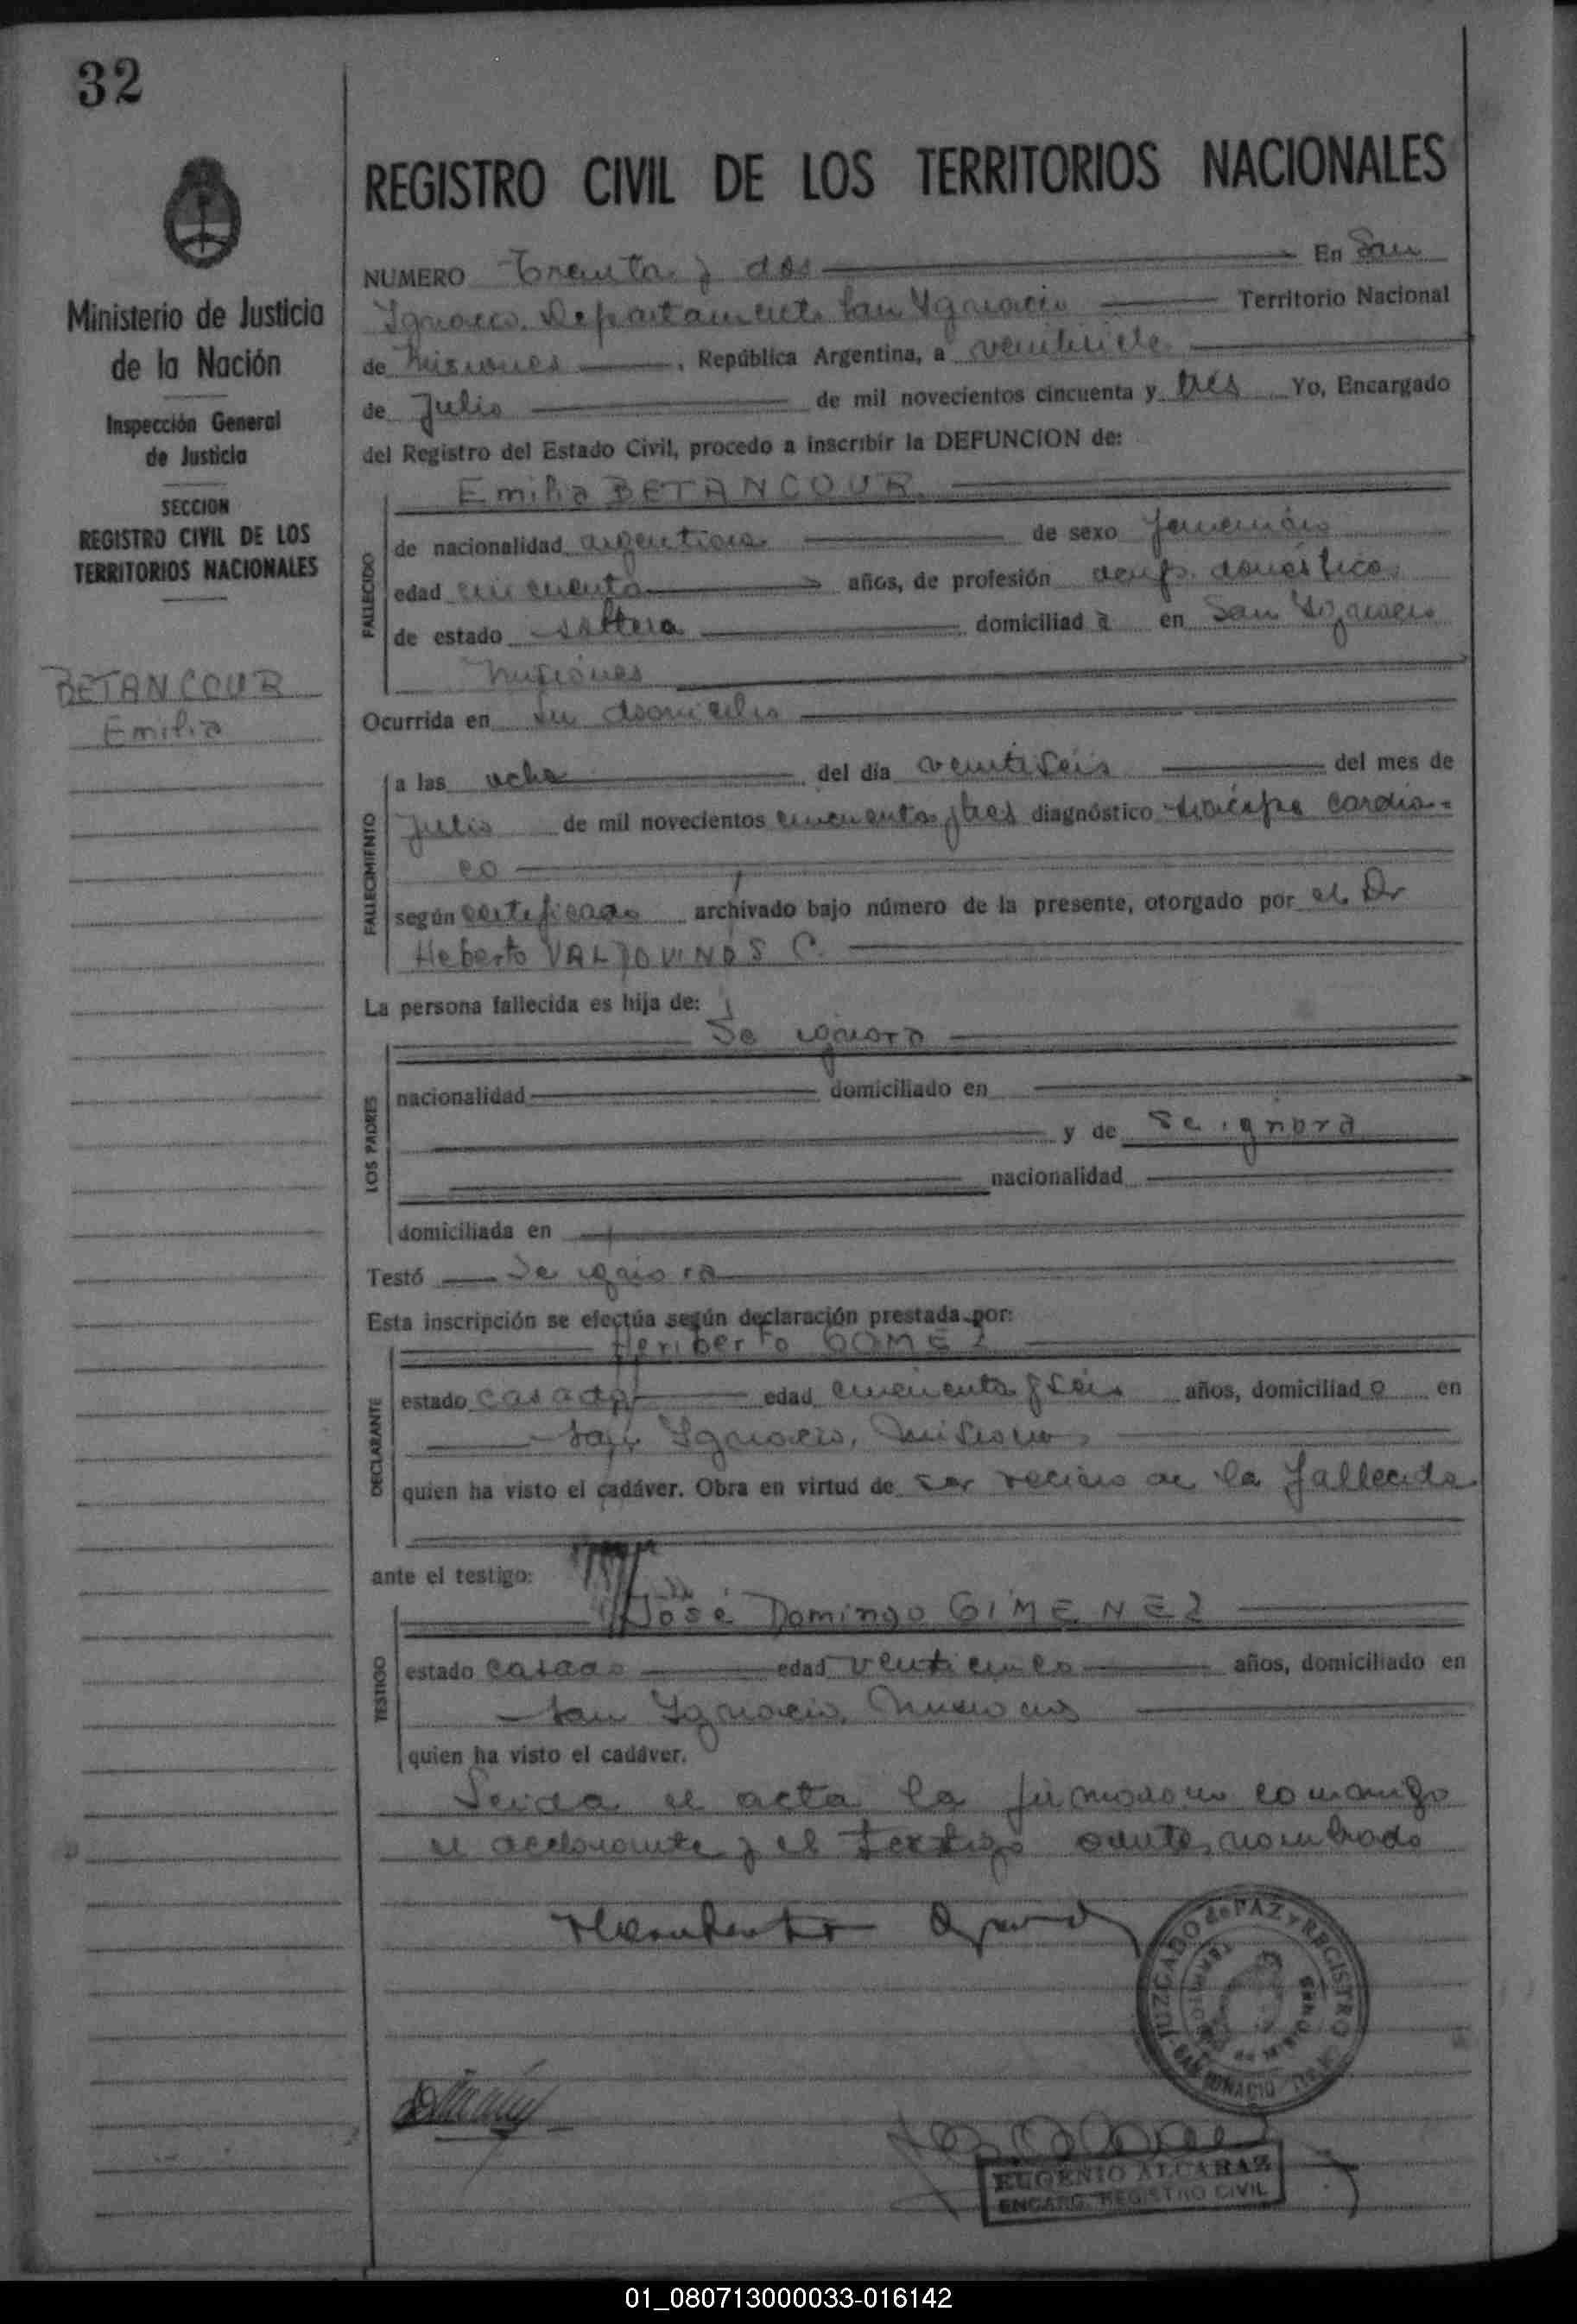 32
Ministerio de Justicia
de la Nación
Inspección General
de Justicia
SECCION
REGISTRO CIVIL DE LOS
TERRITORIOS NACIONALES
BETANCOUR
Emilia
REGISTRO CIVIL DE LOS TERRITORIOS NACIONALES
NUMERO Treinta y dos En San
Ignacio. Departamento San Ignacio Territorio Nacional
de Misiones, República Argentina, a veintisiete
de Julio de mil novecientos cincuenta y tres Yo, Encargado
del Registro del Estado Civil, procedo a inscribir la DEFUNCION de:
Emilia BETANCOUR
FALLECIDO
de nacionalidad argentina de sexo femenino
edad cincuenta años, de profesión ocup. doméstico
de estado soltera domiciliad a en San Ignacio
Misiones
Ocurrida en su domicilio
FALLECIMIENTO
a las ocho del día veintiseis del mes de
Julio de mil novecientos cincuenta y tres diagnóstico sincope cardia=
co
según certificado archivado bajo número de la presente, otorgado por el Dr
Heberto VALDOVINOS C.
La persona fallecida es hija de:
Se ignora
LOS PADRES
nacionalidad domiciliado en
y de se ignora
nacionalidad
domiciliada en
Testó Se ignora
Esta inscripción se efectúa según declaración prestada por:
Heriberto GOMEZ
DECLARANTE
estado casado edad cincuenta y seis años, domiciliad o en
San Ignacio, Misiones
quien ha visto el cadáver. Obra en virtud de ser vecino de la fallecida
ante el testigo:
José Domingo GIMENEZ
TESTIGO
estado casado edad venticinco años, domiciliado en
San Ignacio, Misiones
quien ha visto el cadáver.
Leida el acta la firmaron conmigo
el declarante y el testigo antes nombrado
JUZGADO de PAZ y REGISTRO
SAN IGNACIO
EUGENIO ALCARAZ
ENCARG. REGISTRO CIVIL
01_080713000033-016142